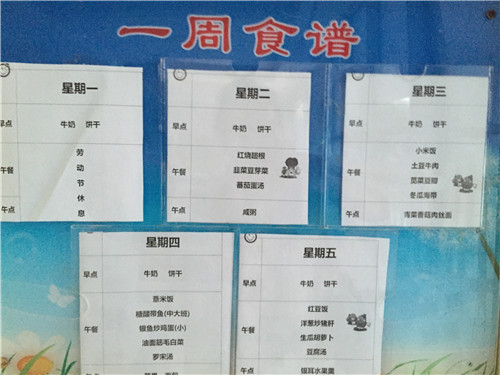 一周食谱
星期一
早点 牛奶 饼干
午餐
劳
动
节
休
息
午点
星期二
早点 牛奶 饼干
午餐
红烧翅根
韭菜豆芽菜
蕃茄蛋汤
午点 咸粥
星期三
早点 牛奶 饼干
午餐
小米饭
土豆牛肉
苋菜豆瓣
冬瓜海带
午点 青菜香菇肉丝面
星期四
早点 牛奶 饼干
午餐
薏米饭
糖醋带鱼(中大班)
银鱼炒鸡蛋(小)
油面筋毛白菜
罗宋汤
星期五
早点 牛奶 饼干
午餐
红豆饭
洋葱炒猪肝
生瓜胡萝卜
豆腐汤
银耳水果羹